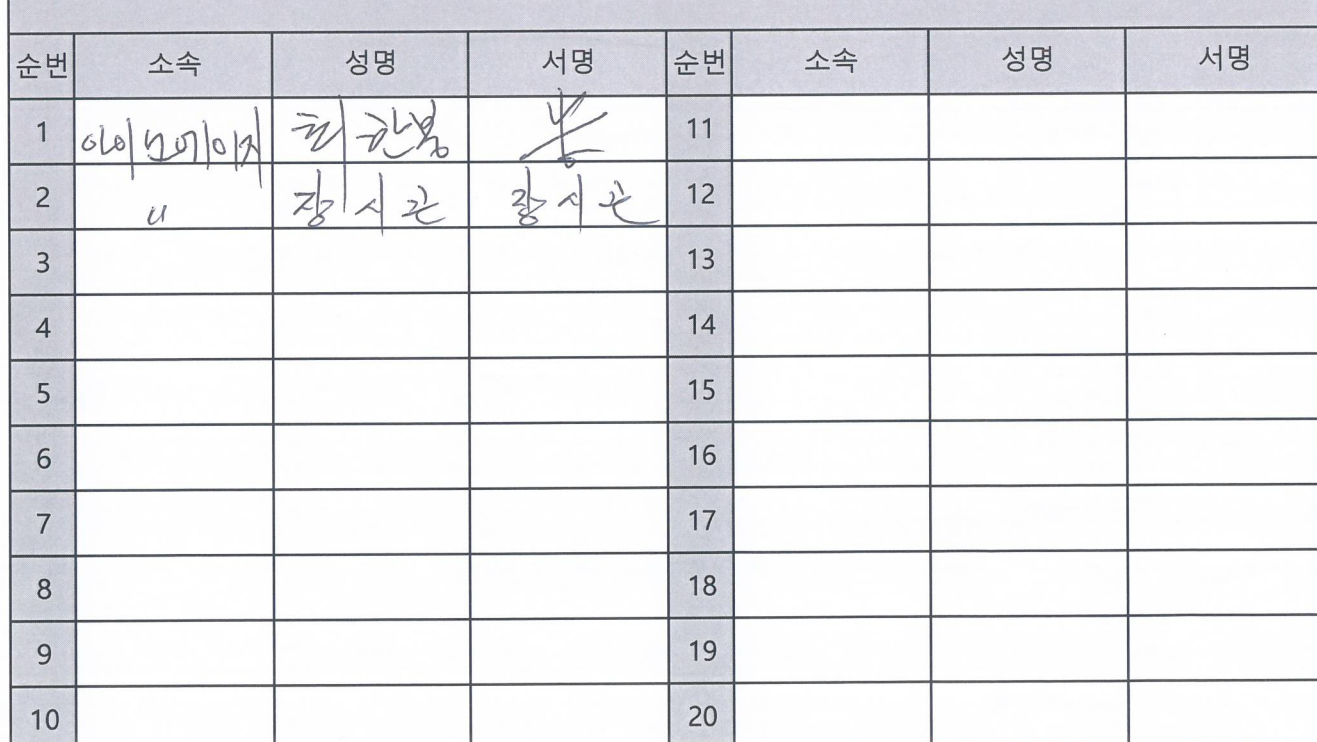 순번 소속 성명 서명 순번 소속 성명 서명
1 아이브에이지 최한봉 봉 11
2 〃 장시곤 장시곤 12
3 13
4 14
5 15
6 16
7 17
8 18
9 19
10 20